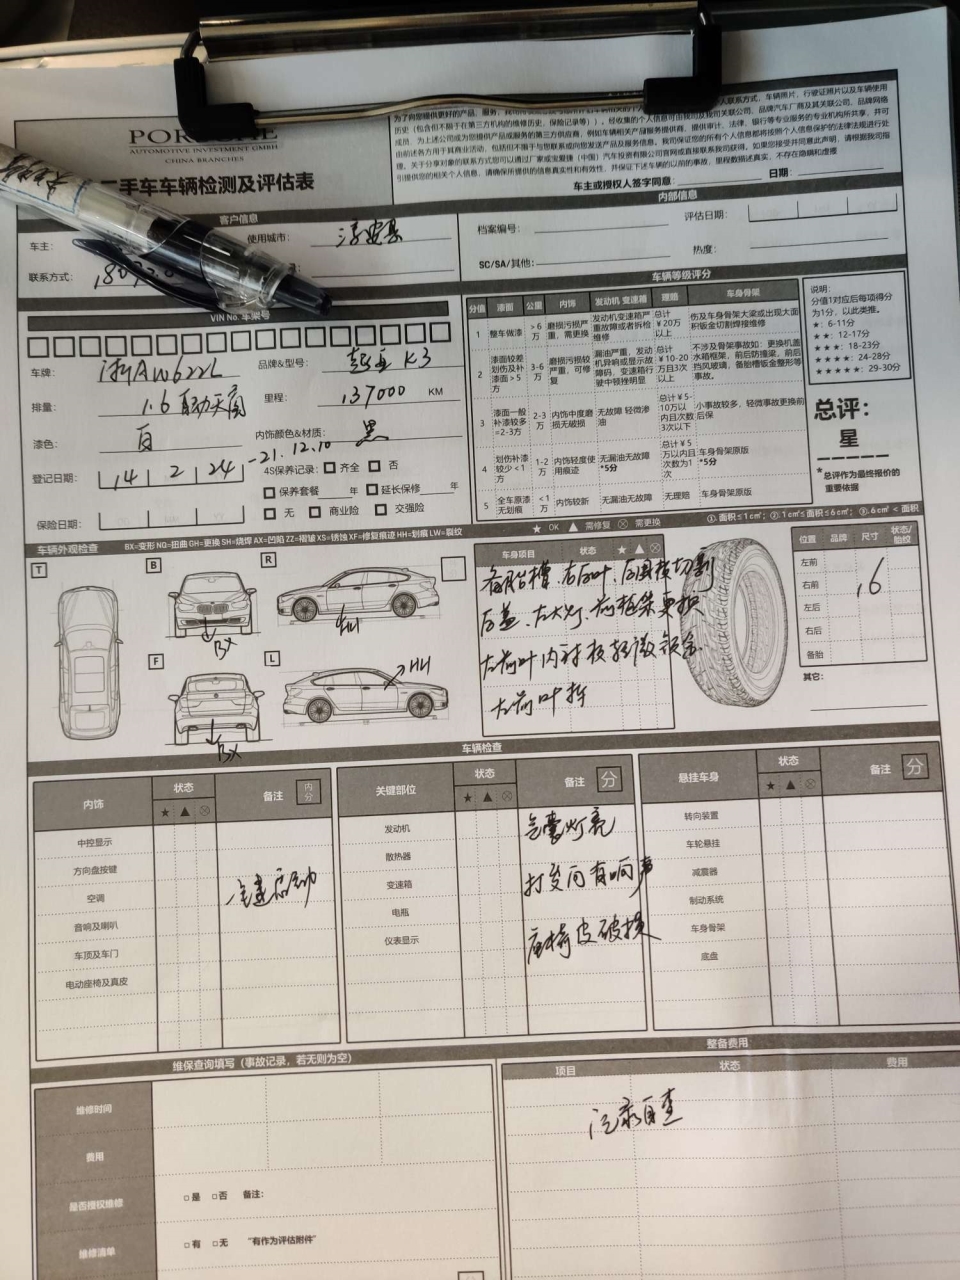 为了向您提供更好的产品、服务，
人联系方式，车辆照片，行驶证照片以及车辆使用
历史（包含但不限于在第三方机构的维修历史、保险记录等））。经收集的个人信息可由我司及我司关联公司、品牌汽车厂商及其关联公司、品牌网络
成员，为上述公司或为您提供产品或服务的第三方供应商，例如车辆相关产品服务提供商、提供审计、法律、银行等专业服务的专业机构所共享，并可
引提供您的相关个人信息，请确保所提供的信息真实性和有效性，并保证下述车辆的以前的事故，里程数描述真实，不存在隐瞒和虚撞
AUTOMOTIVE INVESTMENT GMBH
CHINA BRANCHES
手车车辆检测及评估表
车主或授权人签字同意： 日期：
客户信息
内部信息
车主： 使用城市： 淳安县
档案编号： 评估日期：
联系方式：
SC/SA/其他： 热度：
VIN No. 车架号
车辆等级评分
车牌： 浙AW622L 品牌&型号： 起亚 K3
排量： 1.6 自动天窗 里程： 137000 KM
漆色： 白 内饰颜色&材质： 黑
登记日期： 14 2 24 -21.12.10 4S保养记录： 齐全 否
保养套餐 年 延长保修 年
保险日期： 无 商业险 交强险
分值 漆面 公里 内饰 发动机 变速箱 理赔 车身骨架
1 整车做漆 >6万 磨损污损严重，需更换 发动机变速箱严重故障或者拆检维修 总计￥20万以上 伤及车身骨架大梁或出现大面积钣金切割焊接维修
2 漆面较差划伤及补漆面＞5方 3-6万 磨损污损较严重，可修复 漏油严重，发动机异响或显示故障码，变速箱行驶中顿挫明显 总计￥10-20万且3次以上 不涉及骨架事故如：更换机盖水箱框架，前后防撞梁，前后挡风玻璃，备胎槽钣金整形等事故。
3 漆面一般补漆较多=2-3方 2-3万 内饰中度磨损无破损 无故障 轻微渗油 总计￥5-10万以内且次数3次以下 小事故较多，轻微事故更换前后保
4 划伤补漆较少＜1方 1-2万 内饰轻度使用痕迹 无漏油无故障 *5分 总计￥5万以内且次数为1次 车身骨架原版 *5分
5 全车原漆无划痕 ＜1万 内饰较新 无漏油无故障 无理赔 车身骨架原版
说明：
分值1对应后每项得分为1分，以此类推。
★：6-11分
★★：12-17分
★★★：18-23分
★★★★：24-28分
★★★★★：29-30分
总评：
星
*总评作为最终报价的重要依据
★ OK ▲ 需修复 ⊗ 需更换 ①.面积≤1c㎡；②.1c㎡≤面积≤6c㎡；③.6c㎡＜面积
车辆外观检查 BX=变形 NQ=扭曲 GH=更换 SH=烧焊 AX=凹陷 ZZ=褶皱 XS=锈蚀 XF=修复痕迹 HH=划痕 LW=裂纹
T B R
F L
BX
HH
HH
BX
车身项目 状态 ★ ▲ ⊗
备胎槽、右后叶、后围板切割
后盖、左大灯、前框架更换
左前叶内衬板轻微钣金
左前叶拆
位置 品牌 尺寸 状态/胎纹
左前
右前 16
左后
右后
备胎
其它：
车辆检查
内饰 状态 备注 内分
★ ▲ ⊗
中控显示
方向盘按键
空调
音响及喇叭
车顶及车门
电动座椅及真皮
一键启动
关键部位 状态 备注 分
★ ▲ ⊗
发动机 气囊灯亮
散热器
变速箱 打方向有响声
电瓶
仪表显示 座椅皮破损
悬挂车身 状态 备注 分
★ ▲ ⊗
转向装置
车轮悬挂
减震器
制动系统
车身骨架
底盘
维保查询填写（事故记录，若无则为空）
维修时间
费用
是否授权维修 □是 □否 备注：
维修清单 □有 □无 "有作为评估附件"
整备费用
项目 状态 费用
记录自查